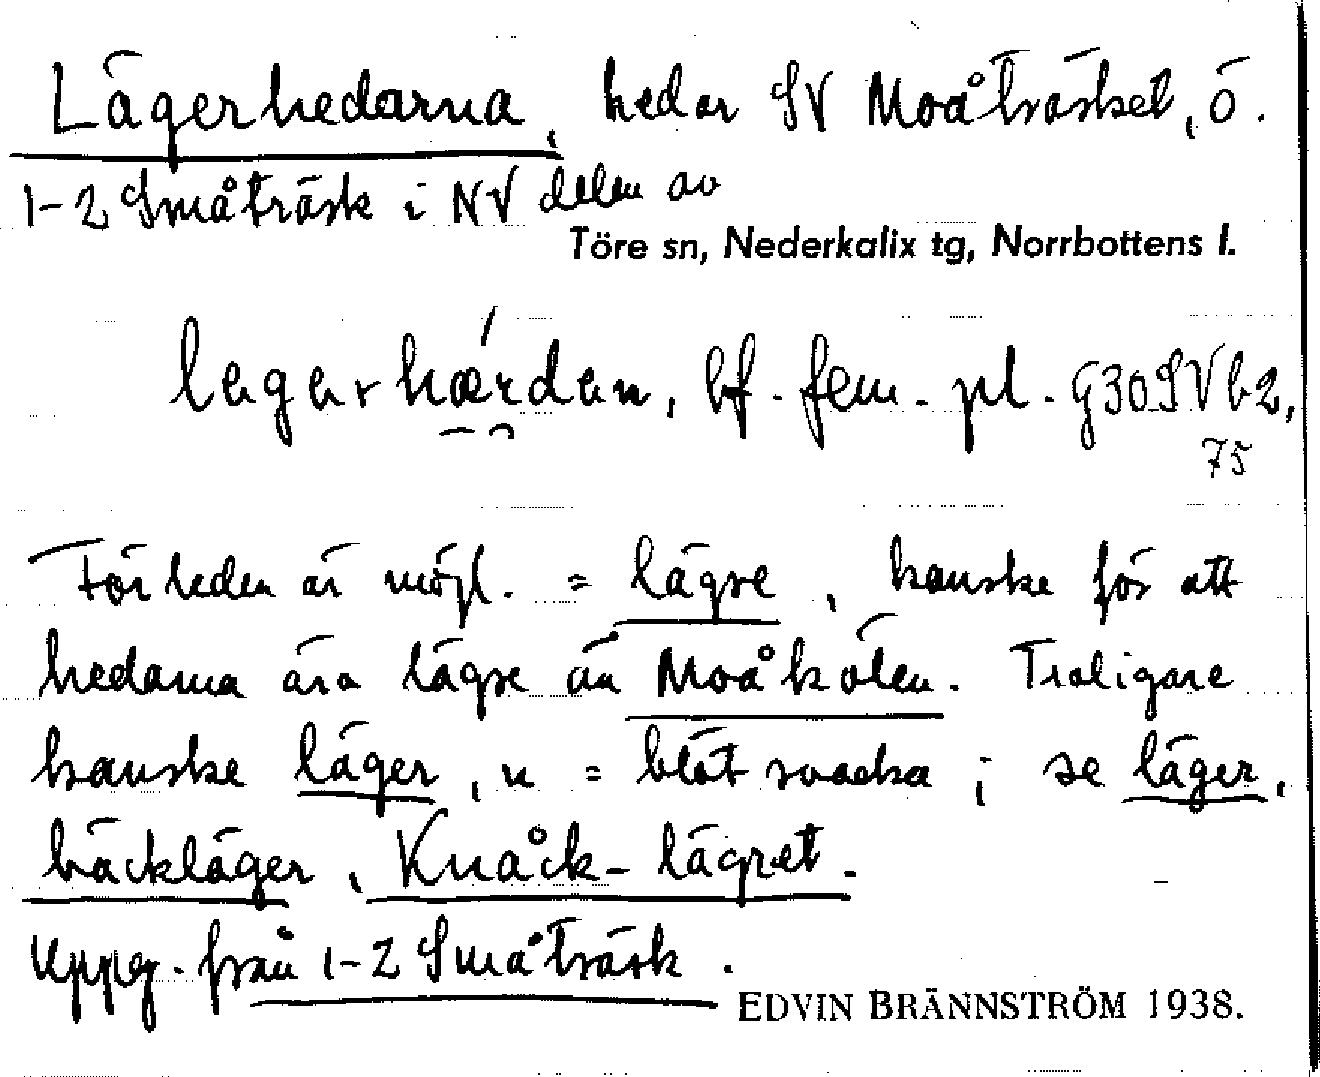 Lägerhedarna, hedar SV Moåträsket, ö.
1-2 Småträsk i NV delen av
Töre sn, Nederkalix tg, Norrbottens l.
lagerhærdan, bf. fem. pl. G30SVb2,
75
Förleden är möjl. = lägre, kanske för att
hedarna äro lägre än Moåkölen. Troligare
kanske läger, n = blöt svacka; se läger,
bäckläger, Knåck-lägret.
Uppg. från 1-2 Småträsk.
EDVIN BRÄNNSTRÖM 1938.